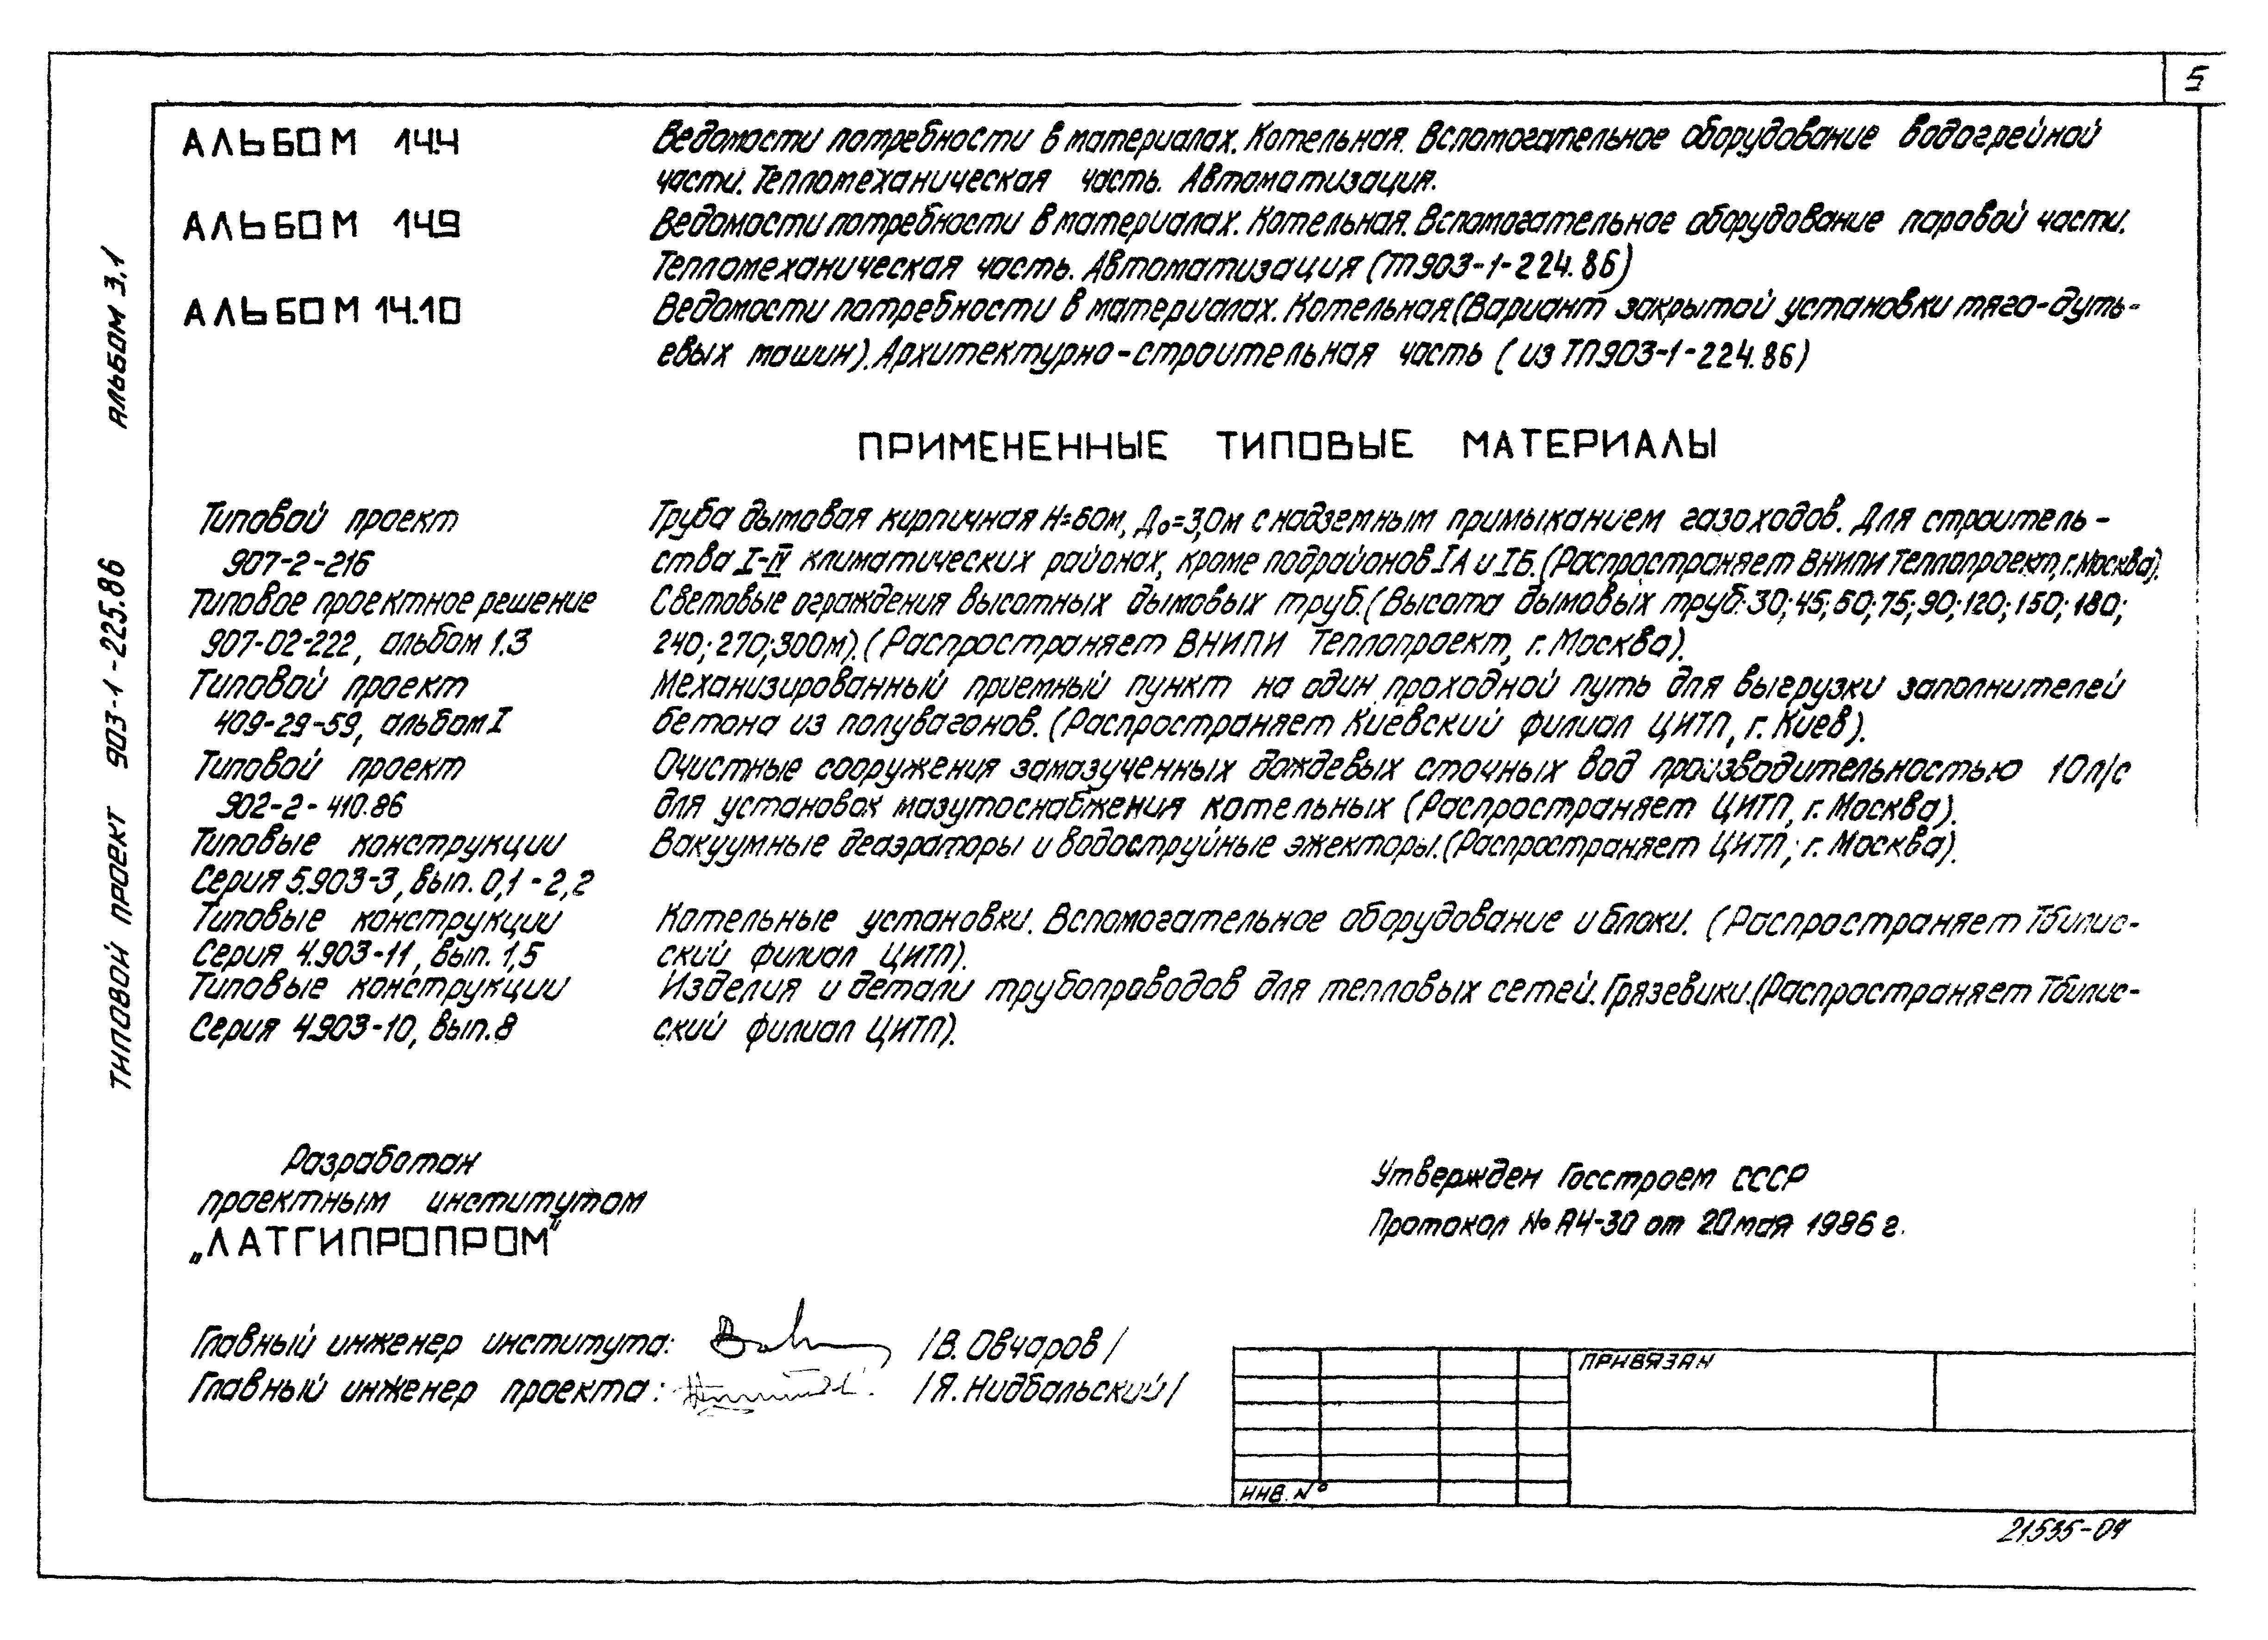 5
АЛЬБОМ 14.4 Ведомости потребности в материалах. Котельная. Вспомогательное оборудование водогрейной
части. Тепломеханическая часть. Автоматизация.
АЛЬБОМ 14.9 Ведомости потребности в материалах. Котельная. Вспомогательное оборудование паровой части.
Тепломеханическая часть. Автоматизация (ТП903-1-224.86)
АЛЬБОМ 14.10 Ведомости потребности в материалах. Котельная.(Вариант закрытой установки тяго-дуть-
евых машин). Архитектурно-строительная часть (из ТП903-1-224.86)
ПРИМЕНЕННЫЕ ТИПОВЫЕ МАТЕРИАЛЫ
Типовой проект Труба дымовая кирпичная Н=60м, До=3,0м с надземным примыканием газоходов. Для строитель-
907-2-216 ства I-IV климатических районах, кроме подрайонов IА и IБ.(Распространяет ВНИПИ Теплопроект, г. Москва).
Типовое проектное решение Световые ограждения высотных дымовых труб.(Высота дымовых труб: 30; 45; 60; 75; 90; 120; 150; 180;
907-02-222, альбом 1.3 240; 270; 300м). (Распространяет ВНИПИ Теплопроект, г. Москва).
Типовой проект Механизированный приемный пункт на один проходной путь для выгрузки заполнителей
409-29-59, альбом I бетона из полувагонов. (Распространяет Киевский филиал ЦИТП, г. Киев).
Типовой проект Очистные сооружения замазученных дождевых сточных вод производительностью 10 л/с
902-2-410.86 для установок мазутоснабжения котельных (Распространяет ЦИТП, г. Москва).
Типовые конструкции Вакуумные деаэраторы и водоструйные эжекторы.(Распространяет ЦИТП, г. Москва).
Серия 5.903-3, вып. 0,1-2,2
Типовые конструкции Котельные установки. Вспомогательное оборудование и блоки. (Распространяет Тбилис-
Серия 4.903-11, вып. 1,5 ский филиал ЦИТП).
Типовые конструкции Изделия и детали трубопроводов для тепловых сетей. Грязевики.(Распространяет Тбилис-
Серия 4.903-10, вып. 8 ский филиал ЦИТП).
Разработан
проектным институтом
„ЛАТГИПРОПРОМ"
Утвержден Госстроем СССР
Протокол № А4-30 от 20 мая 1986 г.
Главный инженер института: /В. Овчаров/
Главный инженер проекта: /Я. Нидбальский/
ПРИВЯЗАН
ИНВ. №
21535-04
ТИПОВОЙ ПРОЕКТ 903-1-225.86 АЛЬБОМ 3.1